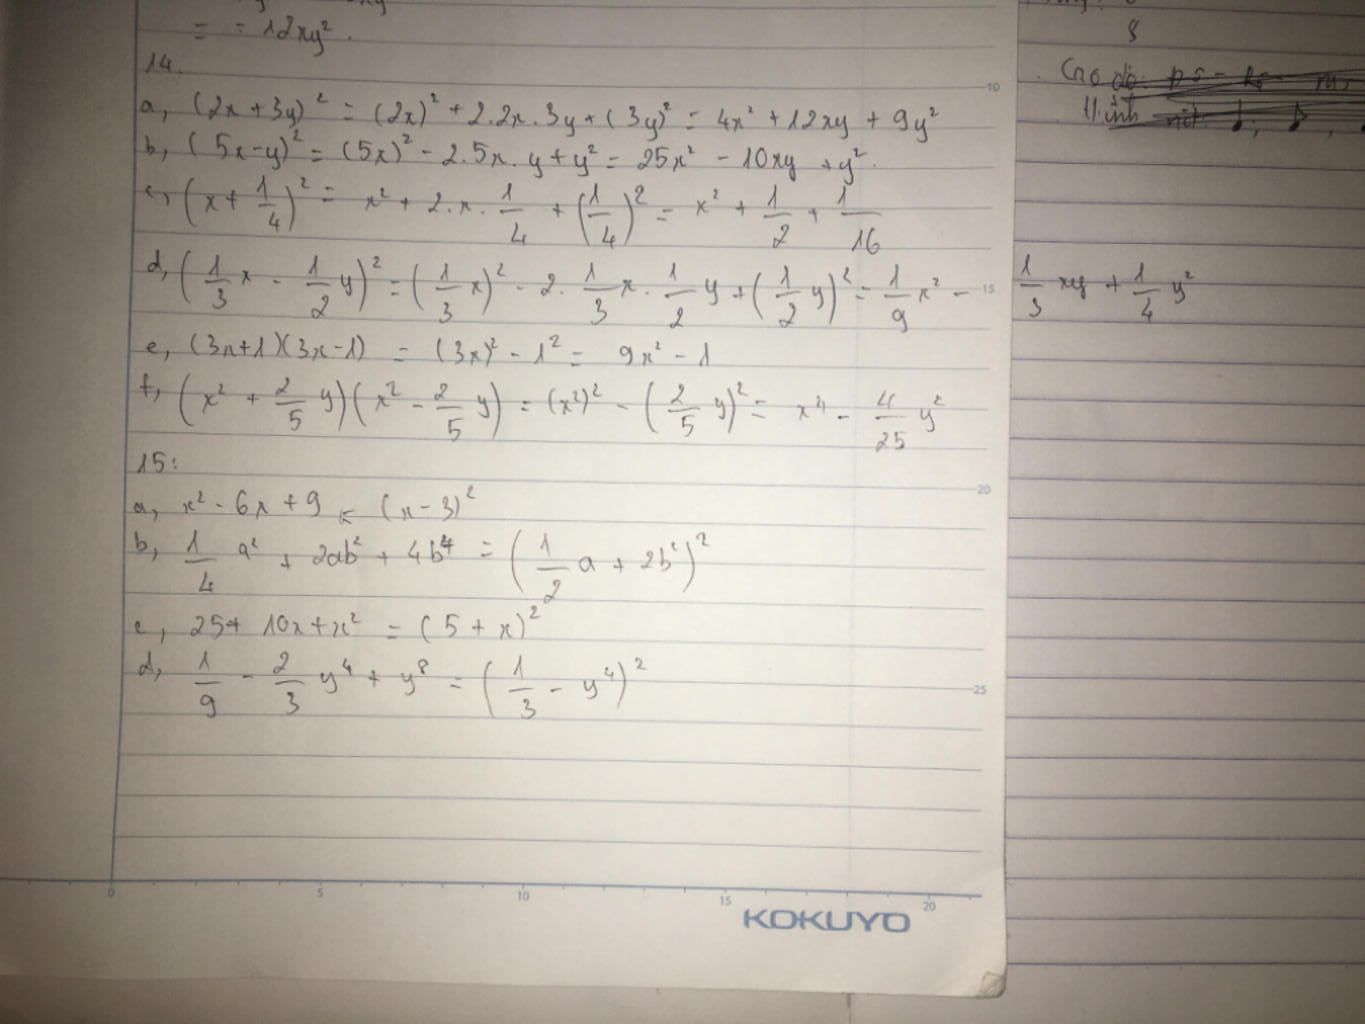 = = 12xy².
14.
a, (2x + 3y)² = (2x)² + 2.2x.3y + (3y)² = 4x² + 12xy + 9y²
b, (5x-y)² = (5x)² - 2.5x.y + y² = 25x² - 10xy + y².
c, (x + 1/4)² = x² + 2.x.1/4 + (1/4)² = x² + 1/2 + 1/16
d, (1/3 x - 1/2 y)² = (1/3 x)² - 2. 1/3 x . 1/2 y + (1/2 y)² = 1/9 x² - 1/3 xy + 1/4 y²
e, (3x+1)(3x-1) = (3x)² - 1² = 9x² - 1
f, (x² + 2/5 y)(x² - 2/5 y) = (x²)² - (2/5 y)² = x⁴ - 4/25 y²
15:
a, x² - 6x + 9 = (x-3)²
b, 1/4 a² + 2ab² + 4b⁴ = (1/2 a + 2b²)²
c, 25 + 10x + x² = (5 + x)²
d, 1/9 - 2/3 y⁴ + y⁸ = (1/3 - y⁴)²
10
15
20
25
0 5 10 15 20
KOKUYO
8